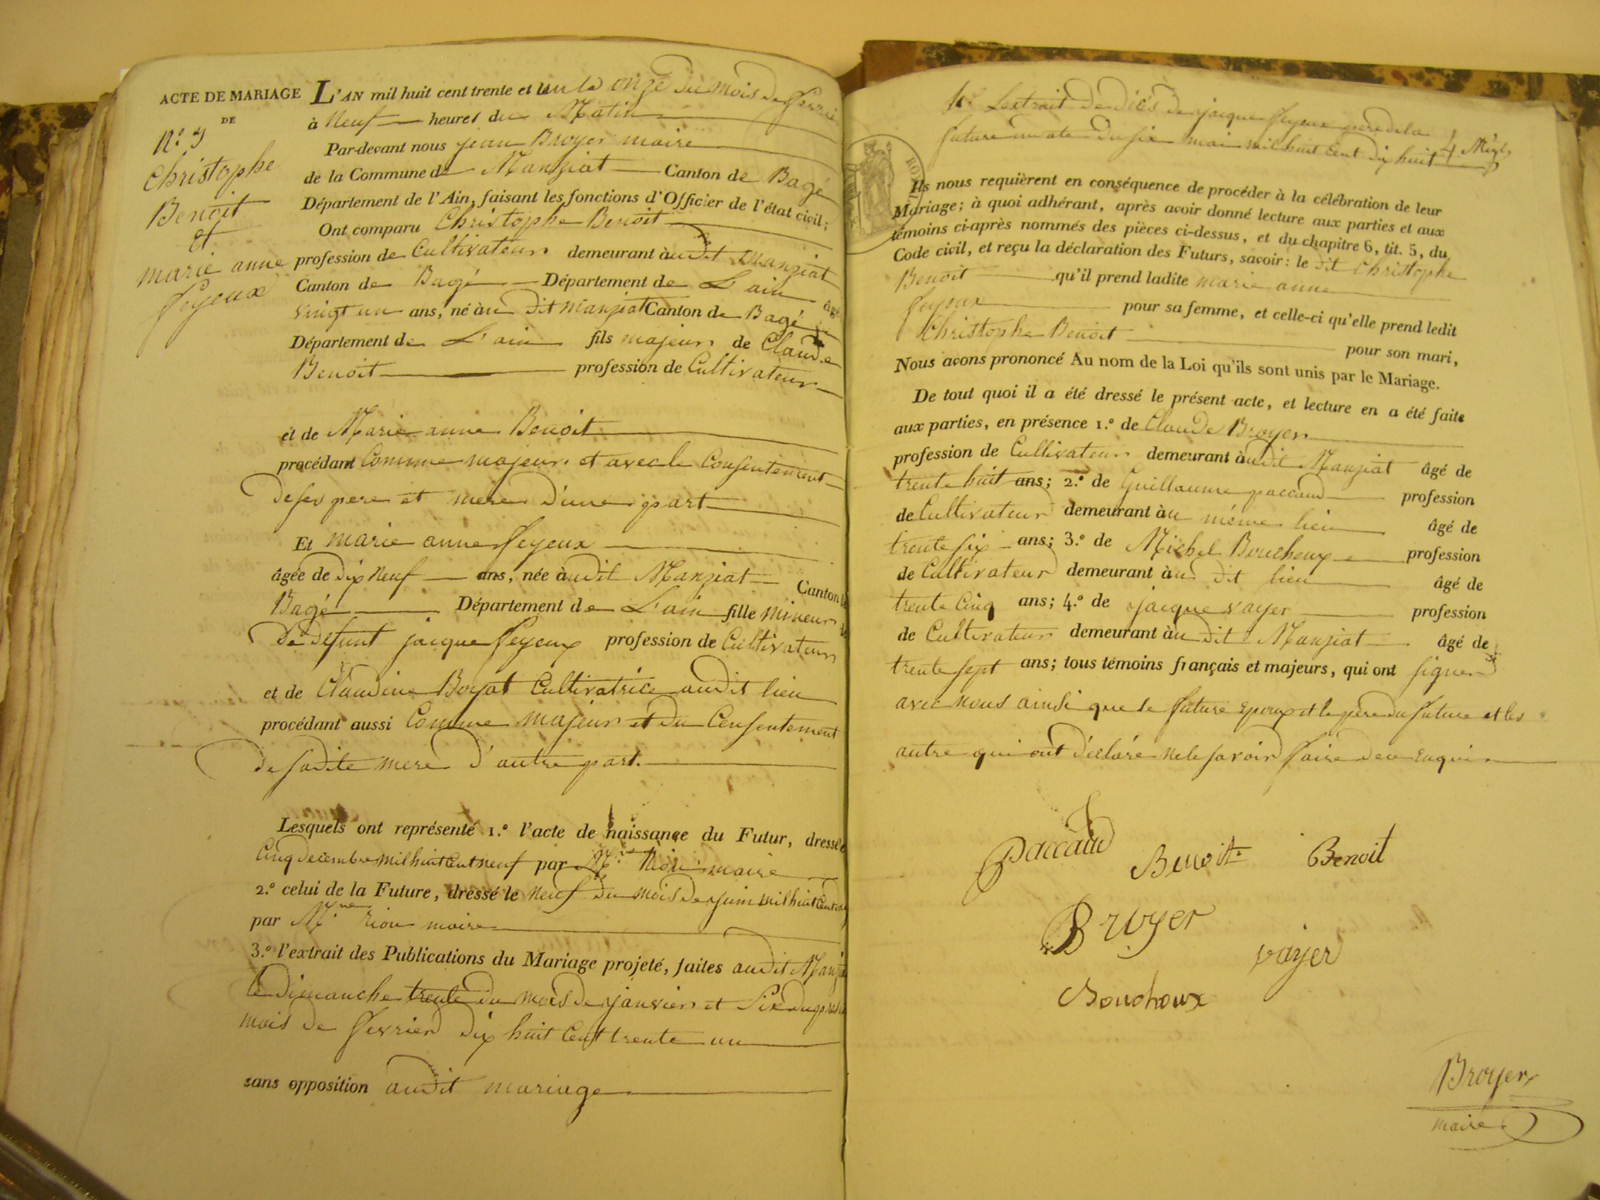 ACTE DE MARIAGE
DE
N.º 9
Christophe
Benoit
et
marie anne
feyeux
L'AN mil huit cent trente et un le onze du mois de fevrier
à Neuf heures du Matin
Par-devant nous jean Broyer maire
de la Commune de Manziat Canton de Bagé
Département de l'Ain, faisant les fonctions d'Officier de l'état civil;
Ont comparu Christophe Benoit
profession de Cultivateur demeurant audit Manziat
Canton de Bagé Département de L'ain âgé
vingt un ans, né au dit manziat Canton de Bagé
Département de L'ain fils majeur de Claude
Benoit profession de Cultivateur
et de Marie anne Benoit
procédant Comme majeur et avec le Consentement
de ses pere et mere d'une part
Et marie anne feyeux
âgée de dix Neuf ans, née audit Manziat Canton de
Bagé Département de L'ain fille mineur de
de defunt jacque feyeux profession de Cultivateur
et de Claudine Boyat Cultivatrice audit lieu
procédant aussi Comme majeur et du Consentement
de sadite mere d'autre part.
Lesquels ont représenté 1.º l'acte de naissance du Futur, dressé le
Cinq decembre mil huit Cent neuf par M. maire
2.º celui de la Future, dressé le Neuf du mois de juin mil huit Cent
par M. riou maire
3.º l'extrait des Publications du Mariage projeté, faites audit Manziat
le dimanche trente du mois de janvier et Six du présent
mois de fevrier dix huit Cent trente un
sans opposition audit mariage
4.º L'extrait de décès de jacque feyeux pere de la
future en date du six mai mil huit Cent dix huit
Ils nous requièrent en conséquence de procéder à la célébration de leur
Mariage; à quoi adhérant, après avoir donné lecture aux parties et aux
témoins ci-après nommés des pièces ci-dessus, et du chapitre 6, tit. 5, du
Code civil, et reçu la déclaration des Futurs, savoir: le dit Christophe
Benoit qu'il prend ladite marie anne
feyeux pour sa femme, et celle-ci qu'elle prend ledit
Christophe Benoit pour son mari,
Nous avons prononcé Au nom de la Loi qu'ils sont unis par le Mariage.
De tout quoi il a été dressé le présent acte, et lecture en a été faite
aux parties, en présence 1.º de Claude Broyer
profession de Cultivateur demeurant audit Manziat âgé de
trente huit ans; 2.º de Guillaume paccaud profession
de Cultivateur demeurant au même lieu âgé de
trente six ans; 3.º de Michel Bouchoux profession
de Cultivateur demeurant au dit lieu âgé de
trente Cinq ans; 4.º de jacque vayer profession
de Cultivateur demeurant au dit Manziat âgé de
trente sept ans; tous témoins français et majeurs, qui ont signer
avec nous ainsi que le future Epoux et le père du future et les
autre qui ont déclaré ne le savoir faire de ce Enquis
paccaud
Benoit
Benoit
Broyer
vayer
Bouchoux
Broyer
maire